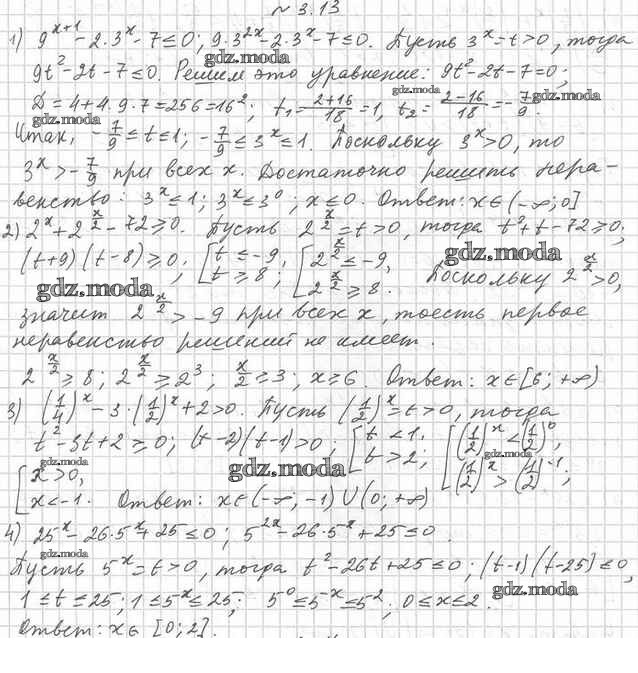 № 3.13
1) 9^{x+1} - 2·3^x - 7 ≤ 0; 9·3^{2x} - 2·3^x - 7 ≤ 0. Пусть 3^x = t > 0, тогда
gdz.moda
9t² - 2t - 7 ≤ 0. Решим это уравнение: 9t² - 2t - 7 = 0;
D = 4 + 4·9·7 = 256 = 16²; t₁ = (2+16)/18 = 1, t₂ = (2-16)/18 = -7/9.
gdz.moda gdz.moda gdz.moda
Итак, -7/9 ≤ t ≤ 1; -7/9 ≤ 3^x ≤ 1. Поскольку 3^x > 0, то
3^x > -7/9 при всех x. Достаточно решить нера-
венство: 3^x ≤ 1; 3^x ≤ 3^0; x ≤ 0. Ответ: x ∈ (-∞; 0]
2) 2^x + 2^{x/2} - 72 ≥ 0. Пусть 2^{x/2} = t > 0, тогда t² + t - 72 ≥ 0;
gdz.moda
(t+9)(t-8) ≥ 0; [t ≤ -9, t ≥ 8; [2^{x/2} ≤ -9, 2^{x/2} ≥ 8. Поскольку 2^{x/2} > 0,
gdz.moda
значит 2^{x/2} > -9 при всех x, тоесть первое
неравенство решений не имеет.
2^{x/2} ≥ 8; 2^{x/2} ≥ 2³; x/2 ≥ 3; x ≥ 6. Ответ: x ∈ [6; +∞)
3) (1/4)^x - 3·(1/2)^x + 2 > 0. Пусть (1/2)^x = t > 0, тогда
t² - 3t + 2 ≥ 0; (t-2)(t-1) > 0; [t < 1, t > 2; [(1/2)^x < (1/2)^0, (1/2)^x > (1/2)^{-1};
gdz.moda gdz.moda gdz.moda
[x > 0, x < -1. Ответ: x ∈ (-∞; -1) ∪ (0; +∞)
4) 25^x - 26·5^x + 25 ≤ 0; 5^{2x} - 26·5^x + 25 ≤ 0.
gdz.moda
Пусть 5^x = t > 0, тогда t² - 26t + 25 ≤ 0; (t-1)(t-25) ≤ 0,
gdz.moda
1 ≤ t ≤ 25; 1 ≤ 5^x ≤ 25; 5^0 ≤ 5^x ≤ 5^2; 0 ≤ x ≤ 2.
Ответ: x ∈ [0; 2].